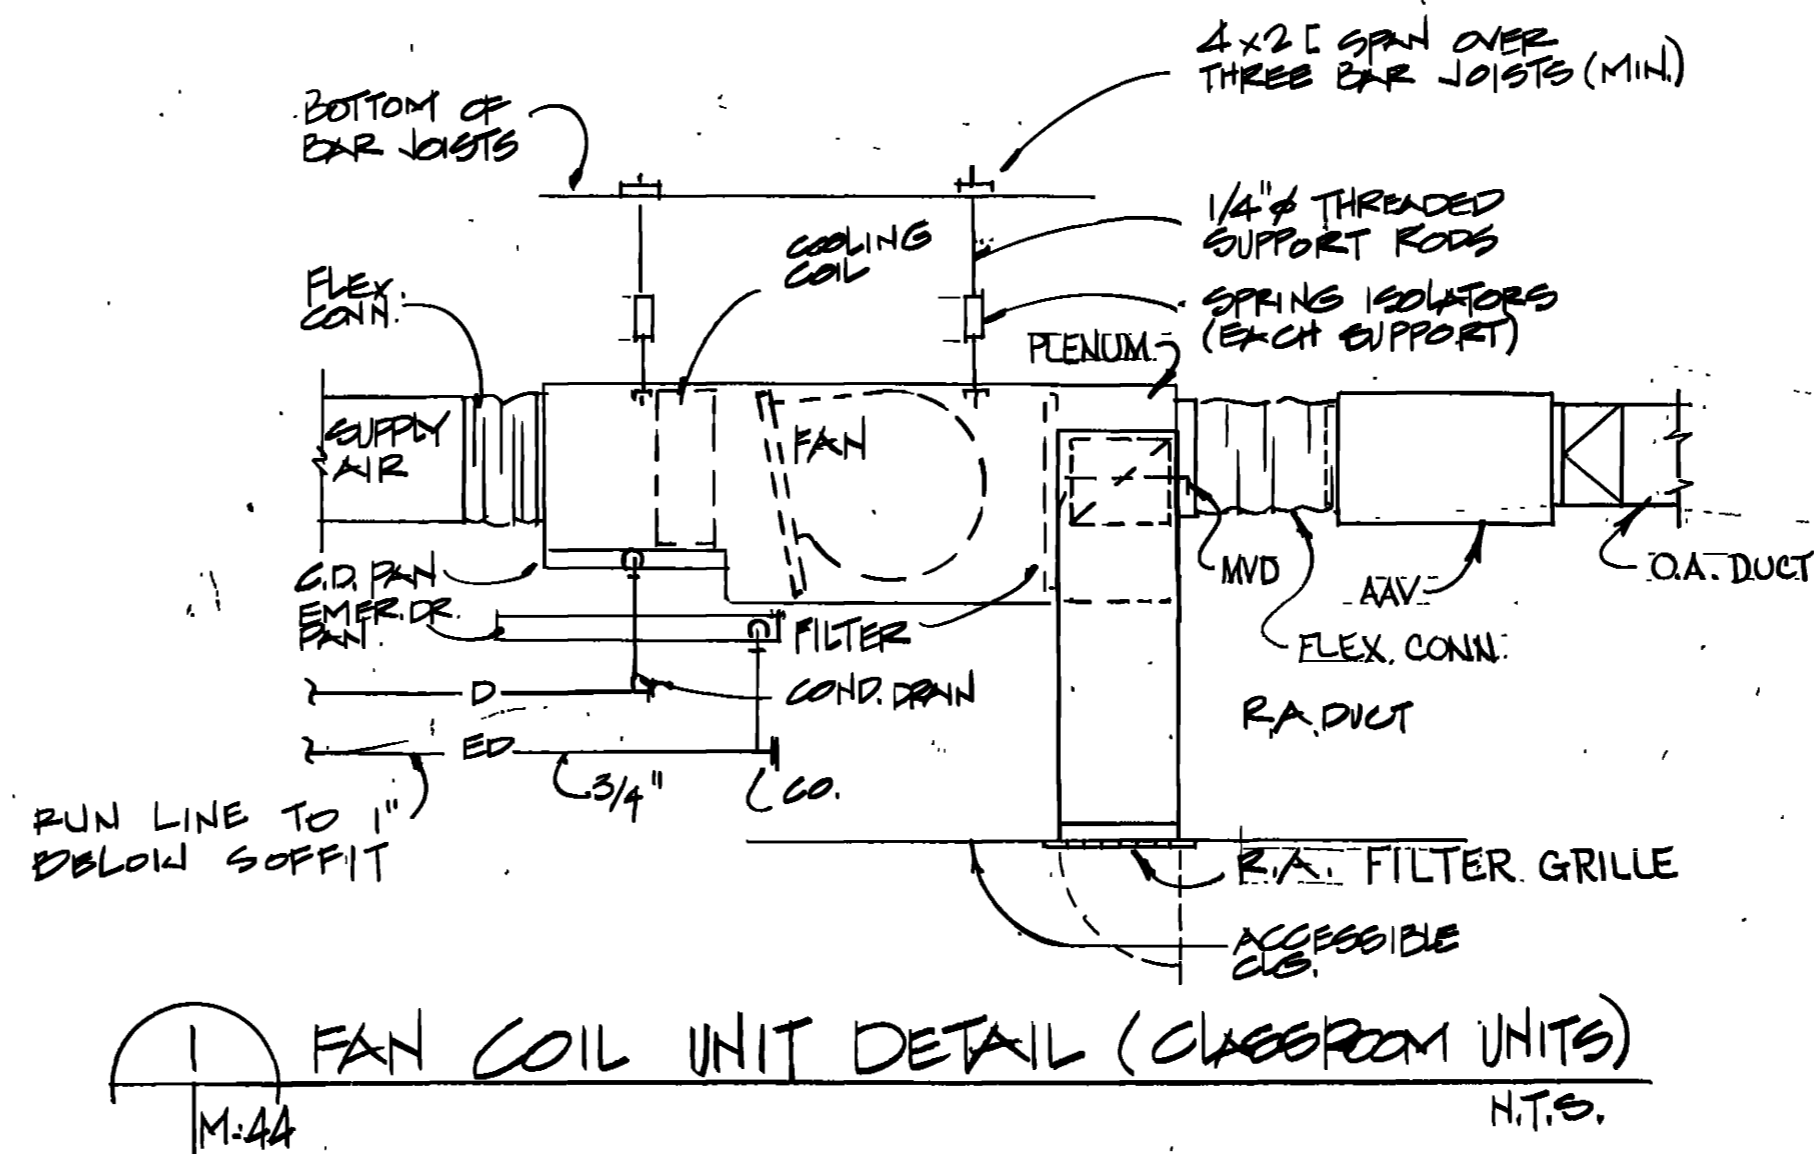 4 x 2 [ SPAN OVER
THREE BAR JOISTS (MIN.)
BOTTOM OF
BAR JOISTS
1/4"ø THREADED
SUPPORT RODS
COOLING
COIL
FLEX.
CONN.
SPRING ISOLATORS
(EACH SUPPORT)
PLENUM
SUPPLY
AIR
FAN
C.D. PAN
EMER. DR.
PAN.
FILTER
MVD
AAV
O.A. DUCT
FLEX. CONN.
D
COND. DRAIN
R.A. DUCT
ED
3/4"
CO.
RUN LINE TO 1"
BELOW SOFFIT
R.A. FILTER GRILLE
ACCESSIBLE
CLG.
1
M-44
FAN COIL UNIT DETAIL (CLASSROOM UNITS)
N.T.S.